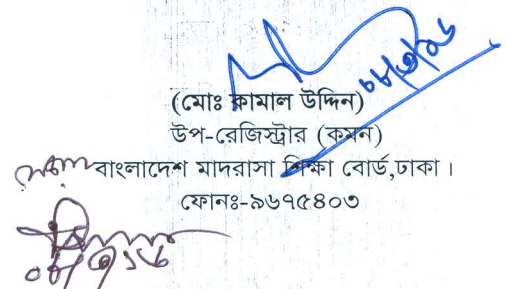 ০৮/৩/১৬
(মোঃ কামাল উদ্দিন)
উপ-রেজিস্ট্রার (কমন)
বাংলাদেশ মাদরাসা শিক্ষা বোর্ড,ঢাকা।
ফোনঃ-৯৬৭৫৪০৩
০৮/৩/১৬